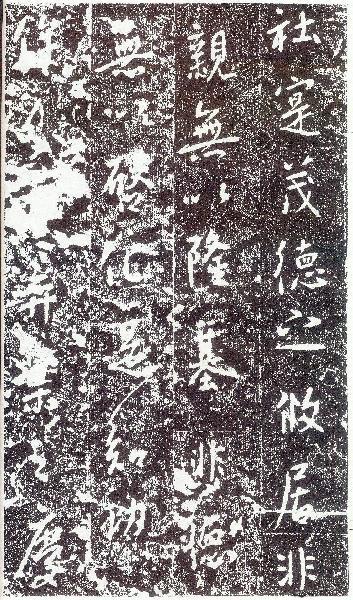 社寔茂德之攸居非
親無以隆基非德
無以啓化是知功
弈葉之慶